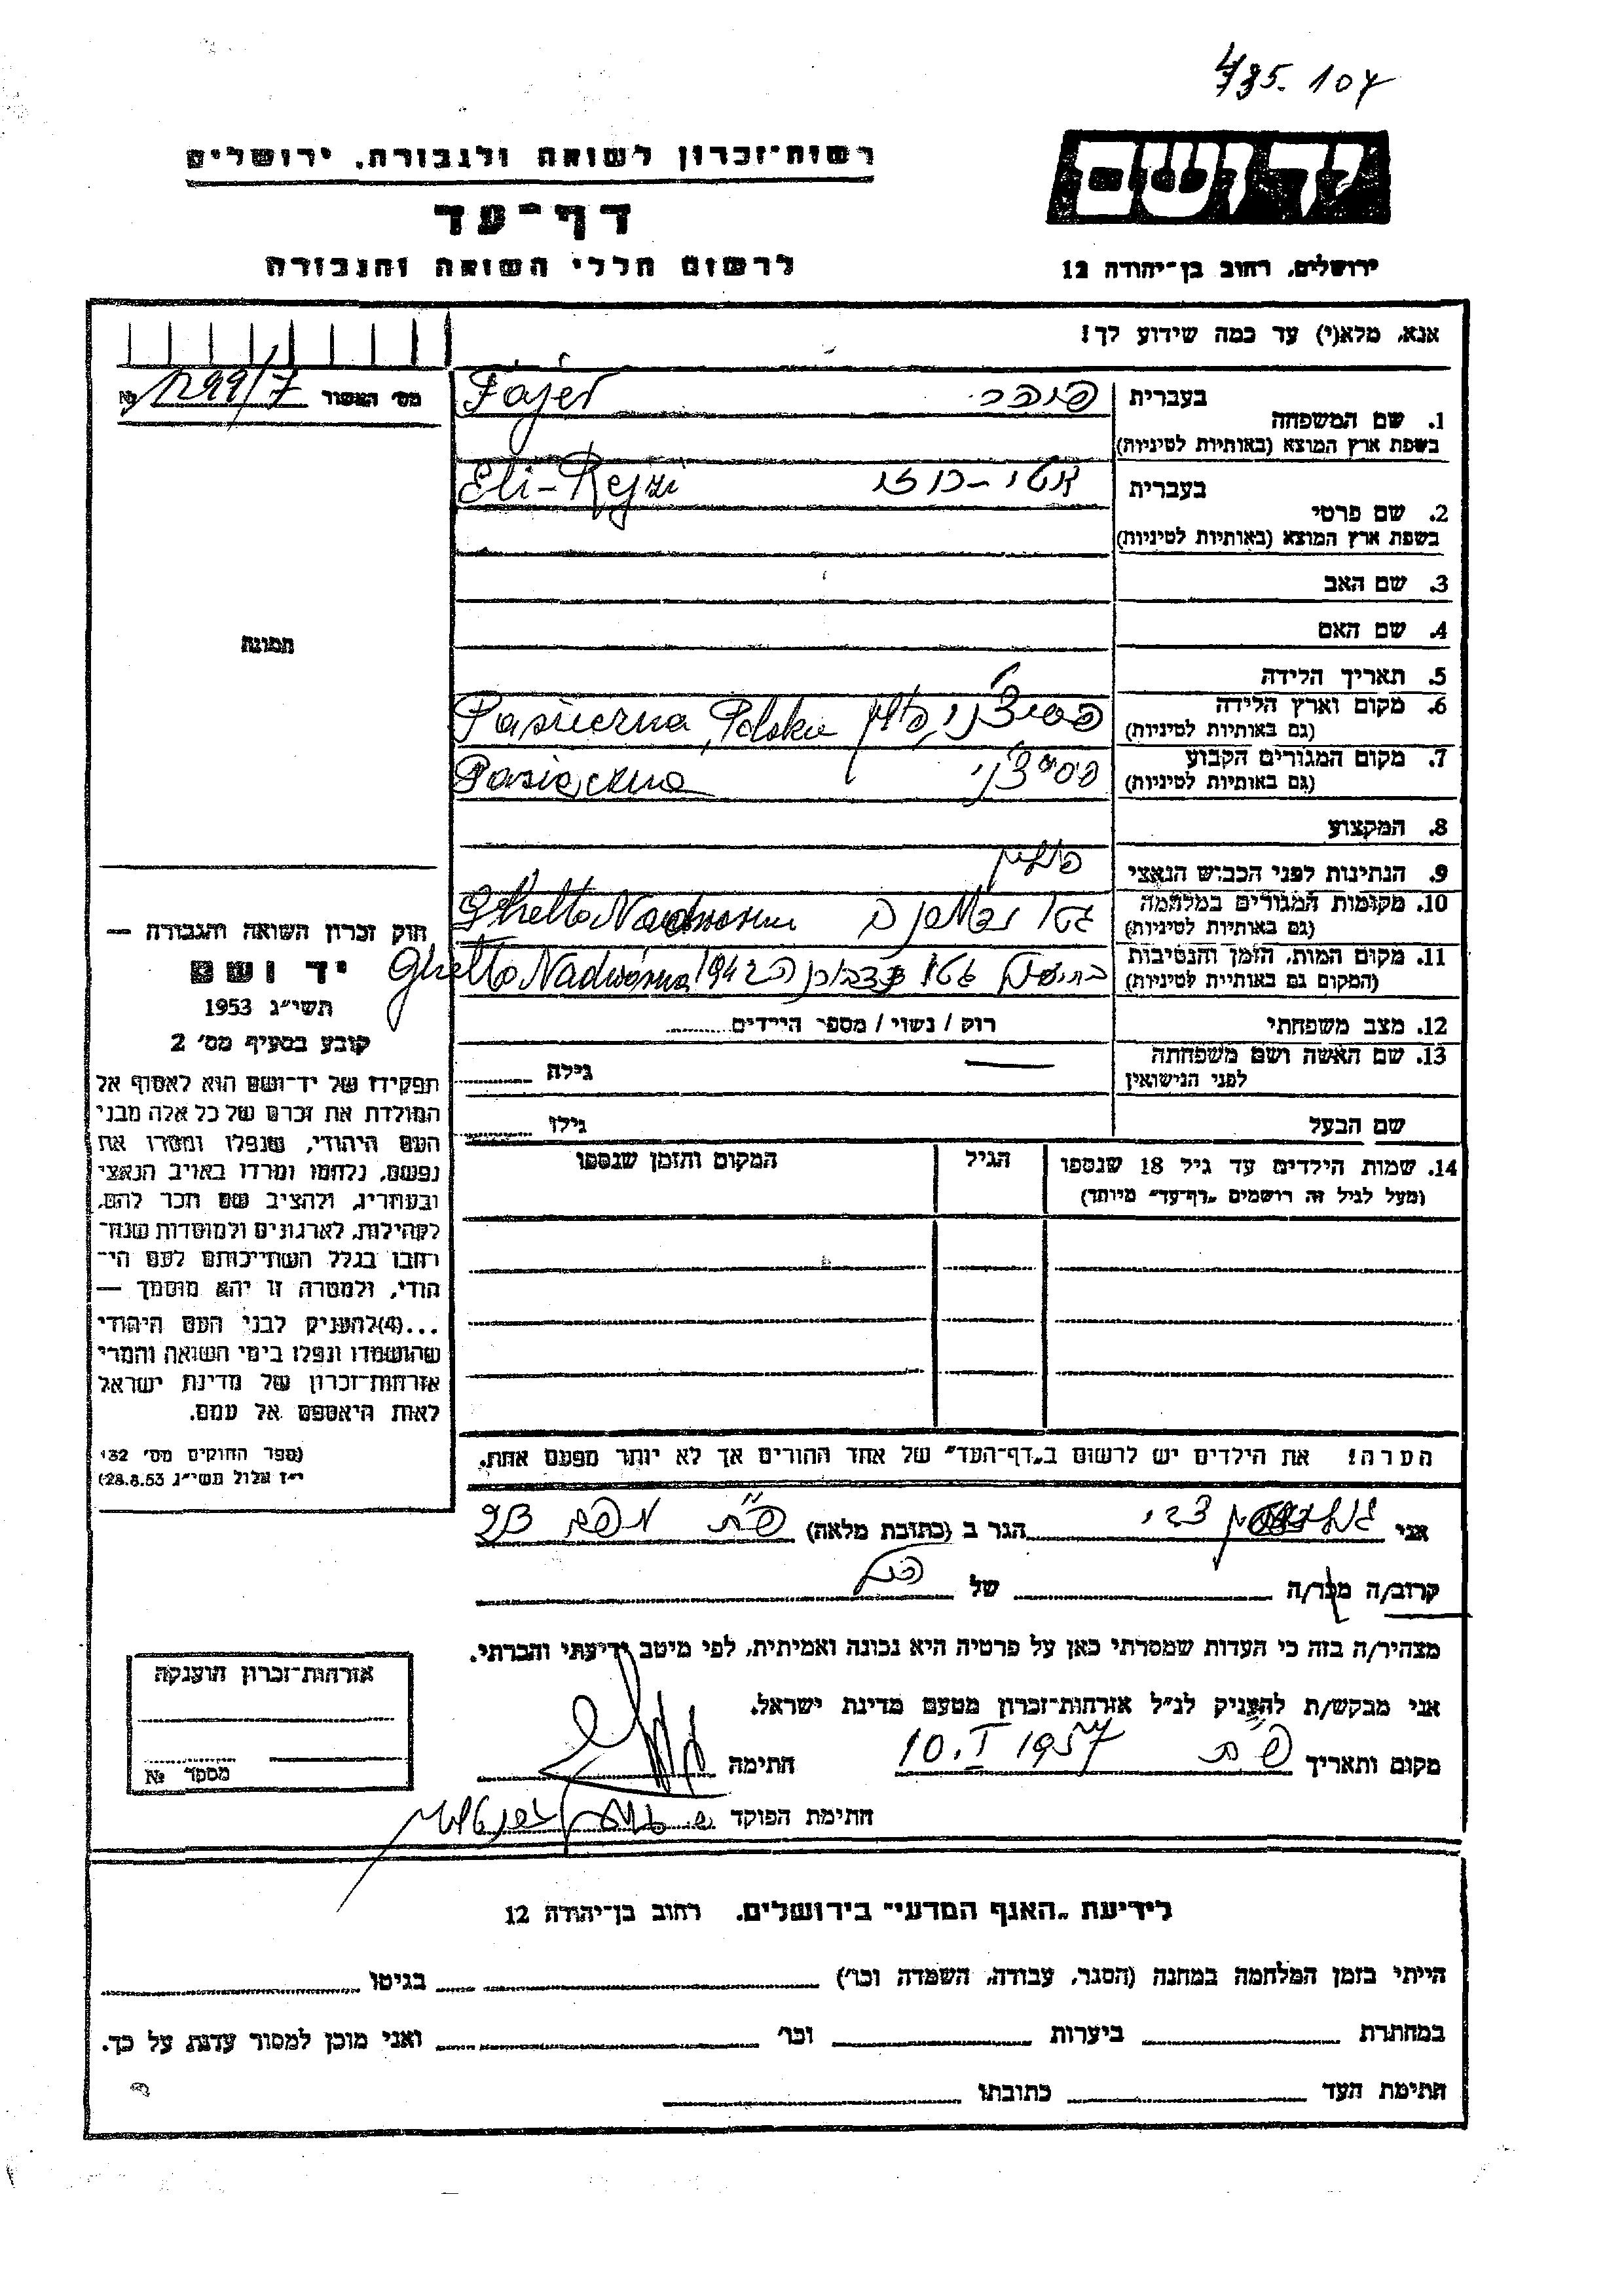 435.107
רשות־זכרון לשואה ולגבורה, ירושלים
יד ושם
דף־עד
לרשום חללי השואה והגבורה
ירושלים, רחוב בן־יהודה 12
אנא, מלא(י) עד כמה שידוע לך!
מס׳ האשור 1299/7 №
1. שם המשפחה
בעברית פויהר
בשפת ארץ המוצא (באותיות לטיניות) Fajer
2. שם פרטי
בעברית אטי-רוזי
בשפת ארץ המוצא (באותיות לטיניות) Eti-Rejzi
3. שם האב
4. שם האם
5. תאריך הלידה
6. מקום וארץ הלידה
(גם באותיות לטיניות)
Polska פולין
7. מקום המגורים הקבוע
(גם באותיות לטיניות)
8. המקצוע
9. הנתינות לפני הכבוש הנאצי פולין
10. מקומות המגורים במלחמה
(גם באותיות לטיניות)
גטו Ghetto Nadworna
11. מקום המות, הזמן והנסיבות
(המקום גם באותיות לטיניות)
גטו 1942 Ghetto Nadwórna
12. מצב משפחתי רוק / נשוי / מספר הילדים
13. שם האשה ושם משפחתה
לפני הנישואין
גילה
שם הבעל גילו
14. שמות הילדים עד גיל 18 שנספו
(מעל לגיל זה רושמים „דף־עד״ מיוחד)
הגיל
המקום והזמן שנספו
הערה! את הילדים יש לרשום ב„דף־העד״ של אחד ההורים אך לא יותר מפעם אחת.
תמונה
חוק זכרון השואה והגבורה —
יד ושם
תשי״ג 1953
קובע בסעיף מס׳ 2
תפקידו של יד־ושם הוא לאסוף אל
המולדת את זכרם של כל אלה מבני
העם היהודי, שנפלו ומסרו את
נפשם, נלחמו ומרדו באויב הנאצי
ובעוזריו, ולהציב שם וזכר להם,
לקהילות, לארגונים ולמוסדות שנח־
רבו בגלל השתייכותם לעם הי־
הודי, ולמטרה זו יהא מוסמך —
...(4) להעניק לבני העם היהודי
שהושמדו ונפלו בימי השואה והמרי
אזרחות־זכרון של מדינת ישראל
לאות היאספם אל עמם.
(ספר החוקים מס׳ 132
י״ז אלול תשי״ג 28.8.53)
אני צבי הגר ב (כתובת מלאה) פ״ת
קרוב/ה מכר/ה של
מצהיר/ה בזה כי העדות שמסרתי כאן על פרטיה היא נכונה ואמיתית, לפי מיטב ידיעתי והכרתי.
אני מבקש/ת להעניק לנ״ל אזרחות־זכרון מטעם מדינת ישראל.
מקום ותאריך פ״ת 10.I 1957 חתימה
חתימת הפוקד
אזרחות־זכרון הוענקה
מספר №
לידיעת „האגף המדעי״ בירושלים. רחוב בן־יהודה 12
הייתי בזמן המלחמה במחנה (הסגר, עבודה, השמדה וכו׳) בגיטו
במחתרת ביערות וכו׳ ואני מוכן למסור עדות על כך.
חתימת העד כתובתו